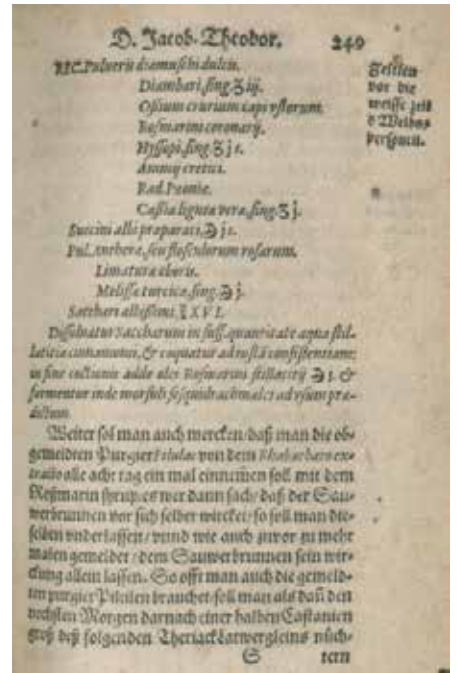 D. Jacob. Theodor. 249
REC. Pulveris diamuschi dulcis.
Diambari, sing. ʒ iij.
Ossium crurium capi ustorum.
Rosmarini coronarij.
Hyssopi, sing. ʒ j s.
Ammij cretici.
Rad. Peoniæ.
Cassiæ ligneæ veræ, sing. ʒ j.
Succini albi præparati, ℈ j s.
Pul. Antheræ, seu flosculorum rosarum.
Limaturæ eboris.
Melissæ turcicæ, sing. ℈ j.
Sacchari albissimi, ℥ XVI.
Dissolvatur Saccharum in suff. quantitate aquæ stil-
latitiæ cinnamomi, & coquatur ad iustā consistentiam:
in fine coctionis adde olei Rosmarini stillatitij ℈ j. &
formentur inde morsuli sesquidrachmales ad usum præ-
dictum.
Zeltlen
vor die
weisse zeit
d Weibs
personen.
Weiter sol man auch mercken/ daß man die ob-
gemeldten Purgier Pilulas von dem Rhabarbaro ex-
tracto alle acht tag ein mal einnem̄en soll mit dem
Roßmarin syrup/ es wer dann sach/ daß der Saur-
werbrunnen vor sich selber wircket/ so soll man die-
selben underlassen/ unnd wie auch zuvor zu mehr
malen gemeldet/ dem Sauwerbrunnen sein wir-
ckung allein lassen. So offt man auch die gemeld-
ten purgier Pillulen brauchet/ soll man als dañ den
nechsten Morgen darnach einer halben Castanien
groß deß folgenden Theriack Latwergleins nüch-
S tern